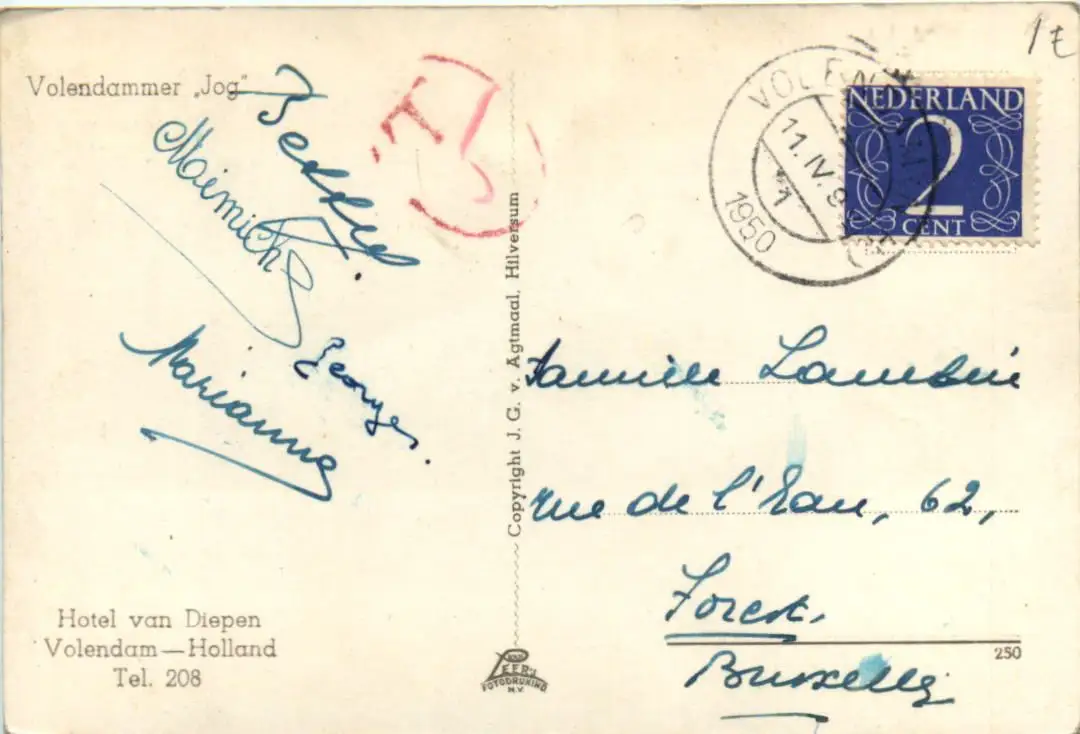 1 E
Volendammer „Jog"
Marianne
Georges.
Hotel van Diepen
Volendam—Holland
Tel. 208
Copyright J. G. v. Agtmaal, Hilversum
VAN
LEER'S
FOTODRUKIND
N.V.
T
VOLENDAM
11.IV.9
1
1950
NEDERLAND
2
CENT
Famille Lambin
rue de l'Eau, 62,
Forest.
Bruxelles
250